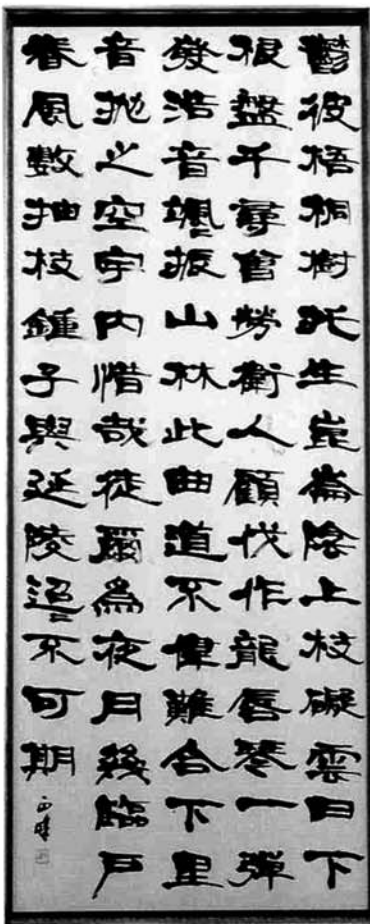 鬱彼梧桐樹託生崑崙陰上枝礙雲日下
根盤千尋曾勞衛人顧伐作龍唇琴一彈
發浩音颯々振山林此曲道不偉難合下里
音拋之空宇內惜哉徒爾爲夜月幾臨戶
春風數抽枝鍾子與延陵迢々不可期